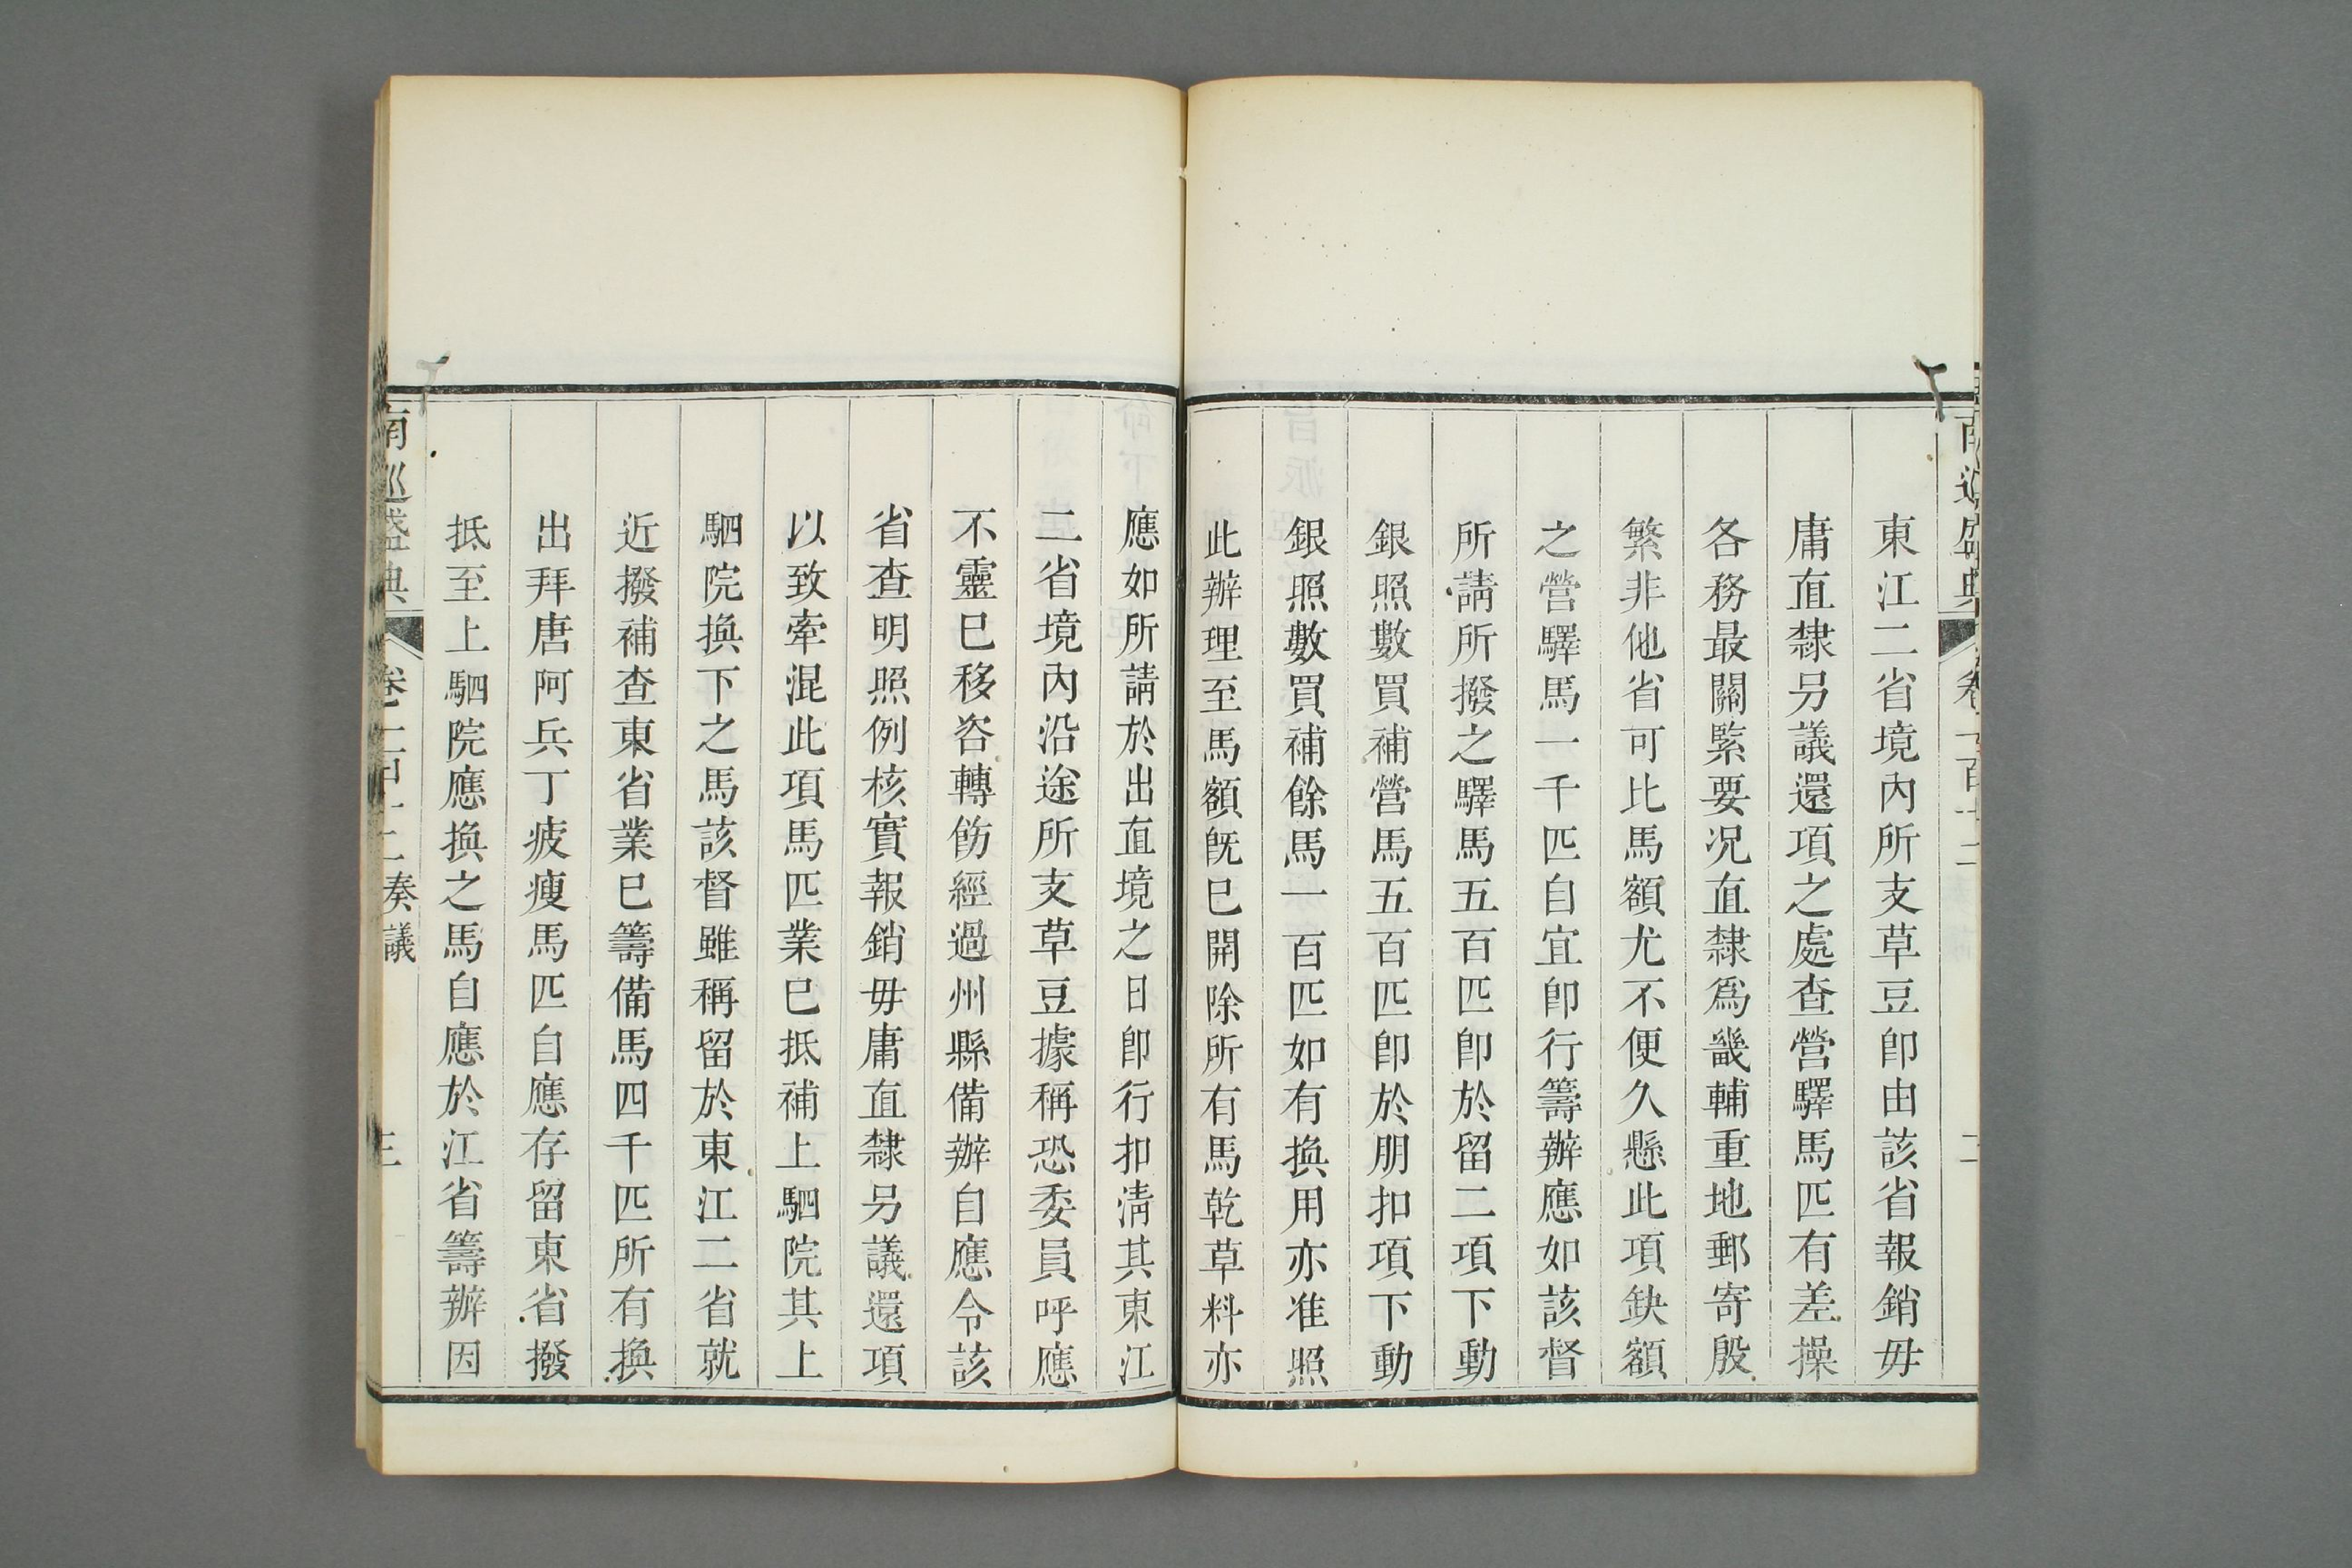 東江二省境內所支草豆卽由該省報銷毋
庸直隸另議還項之處查營驛馬匹有差操
各務最關緊要况直隸爲畿輔重地郵寄殷
繁非他省可比馬額尤不便久懸此項缺額
之營驛馬一千匹自宜卽行籌辦應如該督
所請所撥之驛馬五百匹卽於留二項下動
銀照數買補營馬五百匹卽於朋扣項下動
銀照數買補餘馬一百匹如有換用亦准照
此辦理至馬額旣已開除所有馬乾草料亦
應如所請於出直境之日卽行扣淸其東江
二省境內沿途所支草豆據稱恐委員呼應
不靈已移咨轉飭經過州縣備辦自應令該
省查明照例核實報銷毋庸直隸另議還項
以致牽混此項馬匹業已抵補上駟院其上
駟院換下之馬該督雖稱留於東江二省就
近撥補查東省業已籌備馬四千匹所有換
出拜唐阿兵丁疲瘦馬匹自應存留東省撥
抵至上駟院應換之馬自應於江省籌辦因
南巡盛典
奏議
三